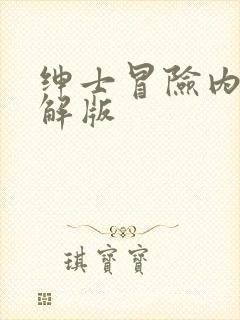 绅士冒險内
解版
琪寶寶